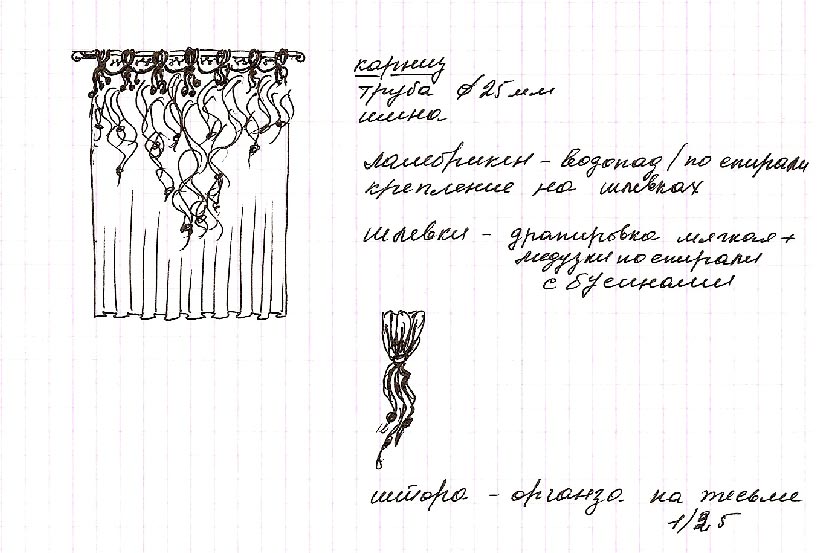 карниз
труба ø 25 мм
шина
ламбрикен - водопад / по спирали
крепление на шлевках
шлевки - драпировка мягкая +
медузки по спирали
с бусинами
штора - органза на тесьме
1/2,5